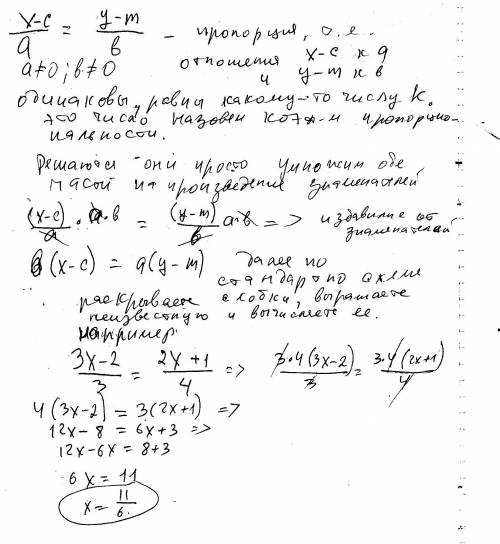 (x-c)/a = (y-m)/b - пропорция, т.е.
a≠0; b≠0 отношения x-c к a
и y-m к в
одинаковы, равны какому-то числу K.
это число назовем коэф-м пропорцио-
нальности.
Решаются они просто умножим обе
части на произведение знаменателей
(x-c)/a · a·в = (y-m)/в a·в => избавились от
знаменателей
в(x-c) = a(y-m) далее по
стандартно схеме
раскрываете скобки, выражаете
неизвестную и вычисляете ее.
например
(3x-2)/3 = (2x+1)/4 => 3·4(3x-2)/3 = 3·4(2x+1)/4
4(3x-2) = 3(2x+1) =>
12x-8 = 6x+3 =>
12x-6x = 8+3
6x = 11
x = 11/6.